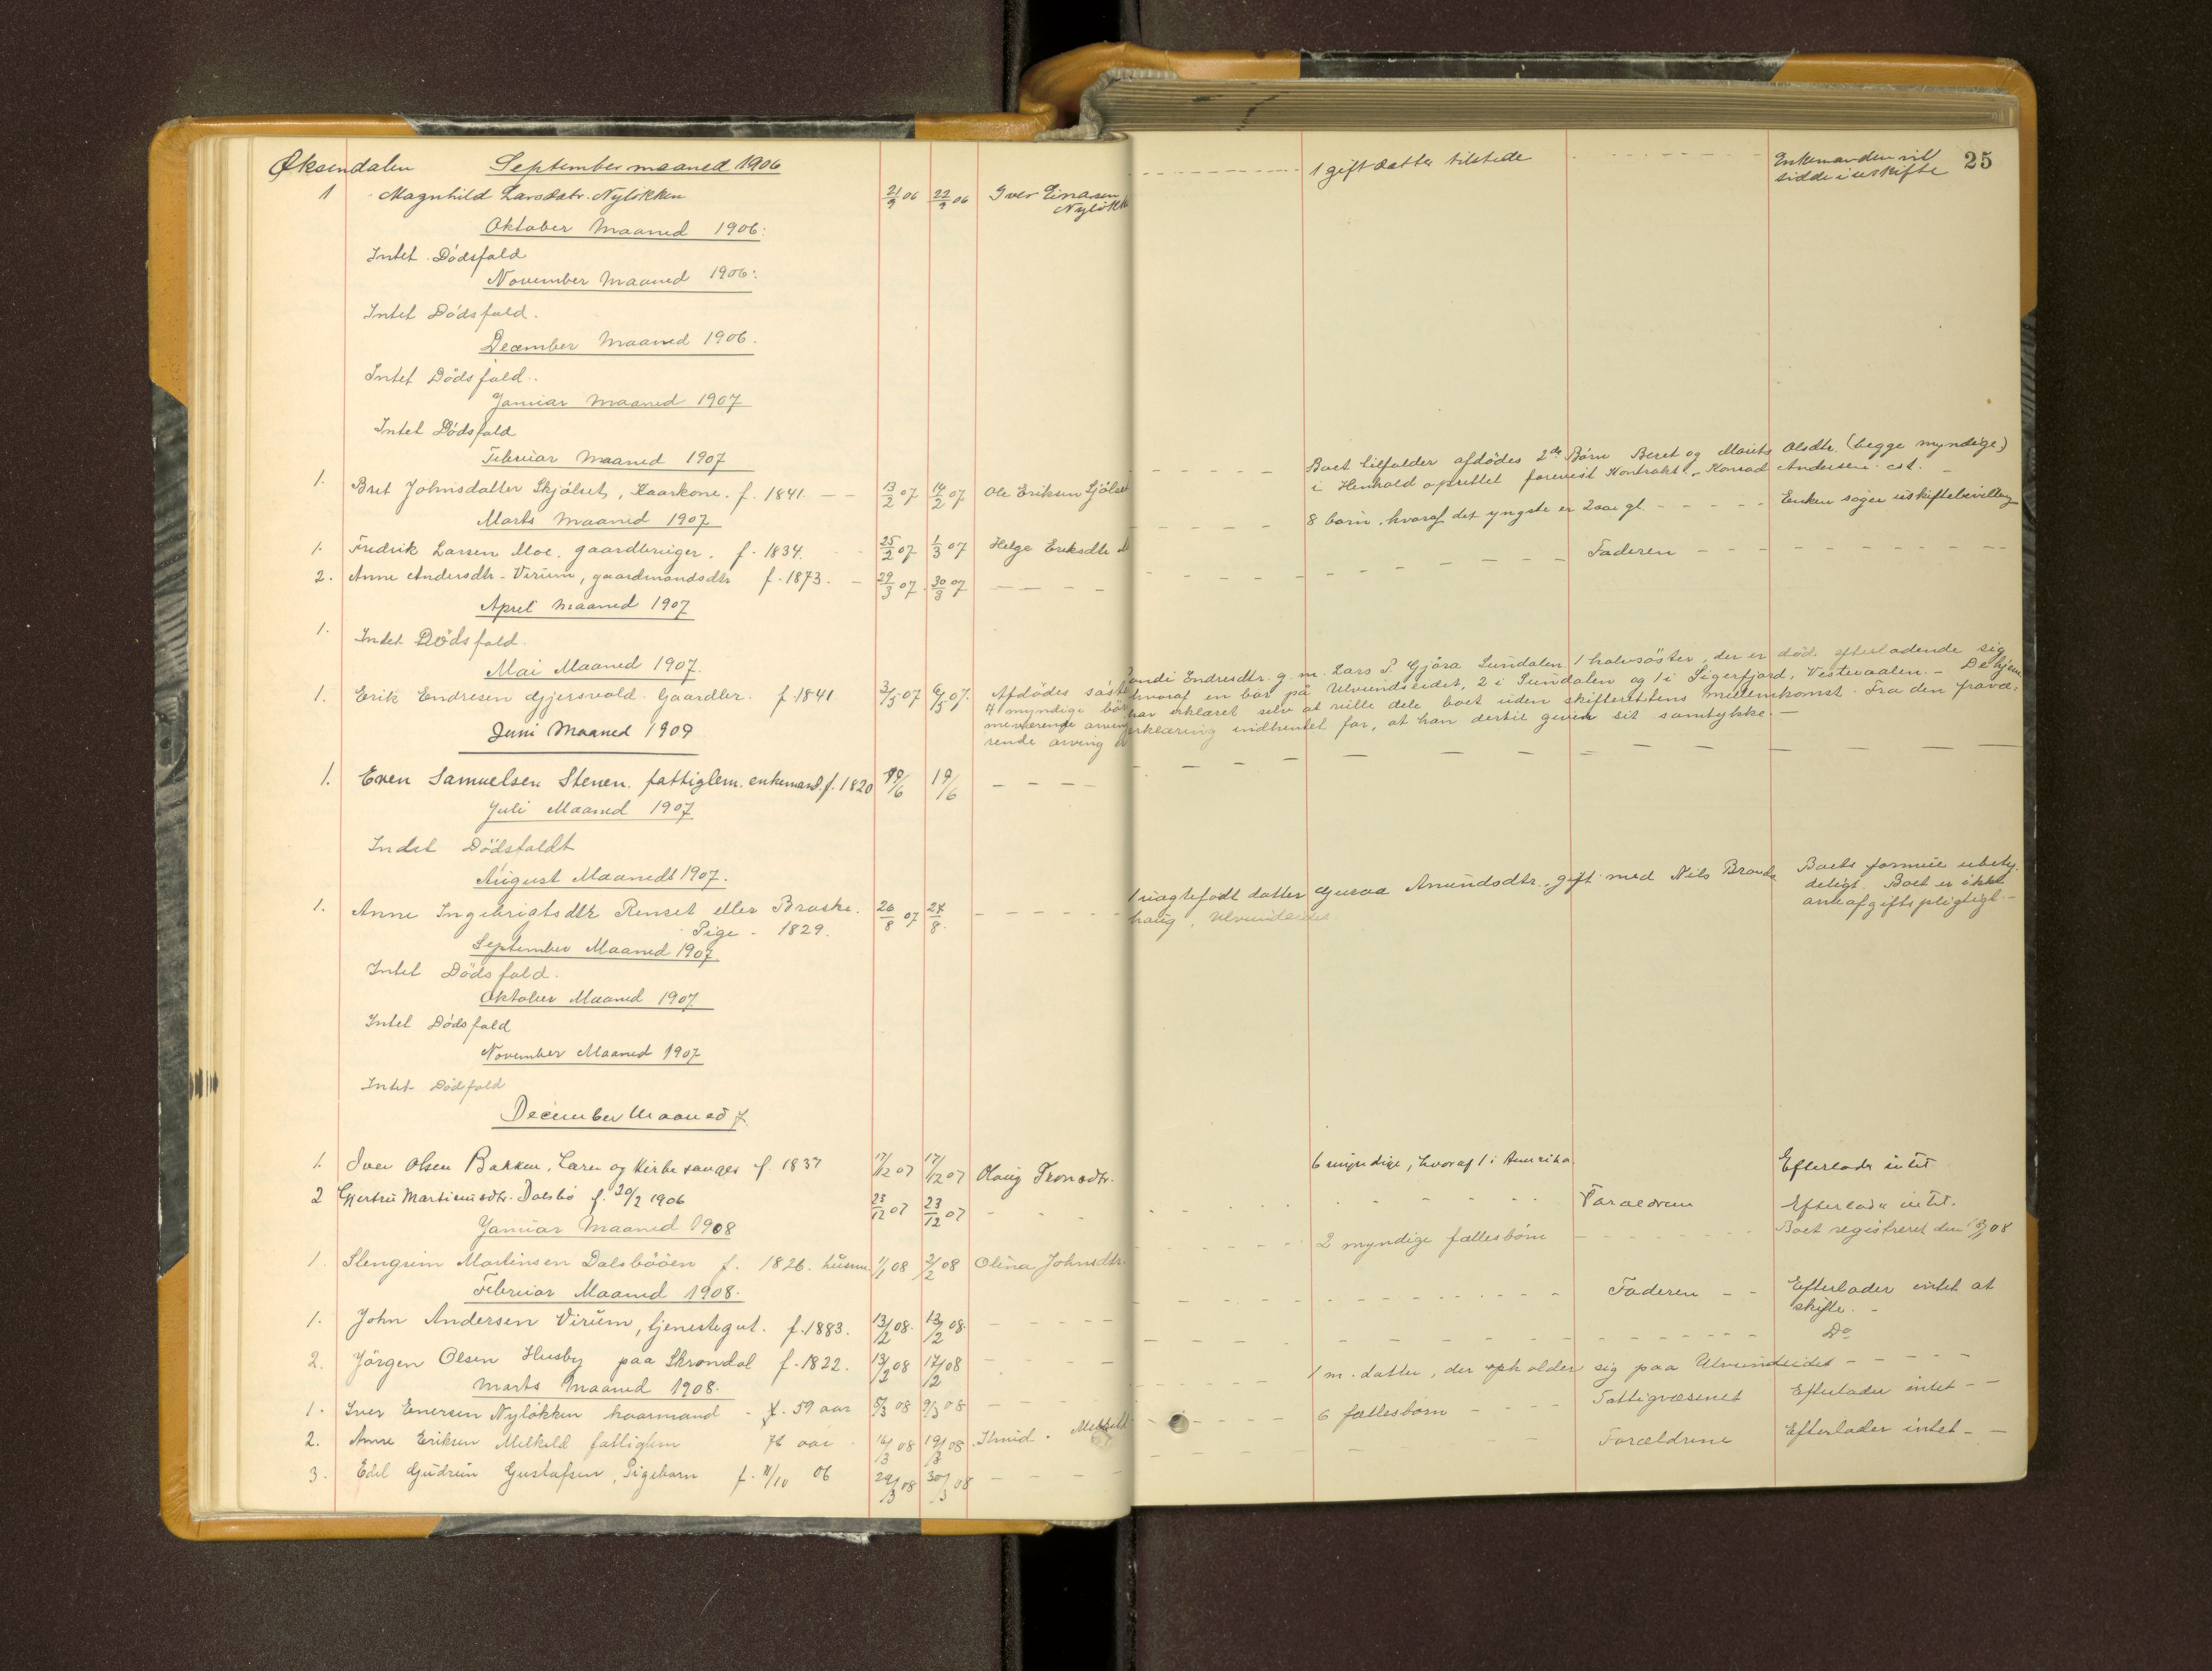 Øksendalen September maaned 1906
1 Magnhild Larsdatr. Nyløkken 21/9 06 22/9 06 Iver Einarsen
Nyløkk
1 gift datter tilstede
Enkemanden vil
sidde i uskifte
25
Oktober Maaned 1906:
Intet Dødsfald
November Maaned 1906:
Intet Dødsfald.
December Maaned 1906.
Intet Dødsfald.
Januar Maaned 1907
Intet Dødsfald
Februar Maaned 1907
1. Bret Johnsdatter Skjølset, Kaarkone. f. 1841. 13/2 07 14/2 07 Ole Eriksen Sjølse
Boet tilfalder afdødes 2de Børn Beret og Marits Olsdtr. (begge myndige)
i Henhold oprettet forevist Kontrakt. Konrad Andersen. cst.
Marts Maaned 1907
1. Fredrik Larsen Moe, gaardbruger, f. 1834. 25/2 07 1/3 07 Helge Eriksdtr
8 børn, hvoraf det yngste er 2 aar gl. Enken søger uskiftebevilling
2. Anne Andersdtr. Virum, gaardmandsdtr f. 1873. 29/3 07 30/3 07 Faderen
April Maaned 1907
1. Intet Dødsfald.
Mai Maaned 1907.
1. Erik Endresen Gjersvold. Gaardbr. f. 1841 3/5 07 6/5 07.
Afdødes søst andi Endresdtr. g. m. Lars P. Gjøra Sundalen 1 halvsøster, der er død efterladende sig
4 myndige bør hvoraf en bor på Ulvundseidet, 2 i Sundalen og 1 i Sigerfjord, Vesteraalen. - De hjem
meværende arving har erklæret selv at ville dele boet uden skifterettens mellemkomst. Fra den fravæ-
rende arving er erklæring indhentet for, at han dertil given sit samtykke. -
Juni Maaned 1909
1. Even Samuelsen Stenen. fattiglem. enkemand. f. 1820 19/6 19/6
Juli Maaned 1907
Indet Dødsfaldt
August Maanedt 1907.
1. Anne Ingebrigtsdtr Renset eller Braske. 26/8 07 27/8.
Pige - 1829.
1 uægtefødt datter Guraa Amundsdtr., gift med Nils Brands
haug, Ulvundeidet
Boets formue ubety
deligt. Boet er ikke
arveafgiftspligtigt. -
September Maaned 1907
Intet Dødsfald.
Oktober Maaned 1907
Intet Dødsfald
November Maaned 1907
Intet Dødsfald
December Maaned 7.
1. Iver Olsen Bakken, Lærer og Kirkesanger f. 1837 17/12 07 17/12 07 Olaug Tronsdtr. 6 myndige, hvoraf 1 i Amerika Efterlader intet
2 Gjertru Martinusdtr. Dalsbø f. 20/2 1906 23/12 07 23/12 07 Foraeldrene Efterlader intet.
Januar Maaned 1908
1. Stengrim Martinsen Dalsbøøen f. 1826. husm. 1/1 08 2/2 08 Olina Johnsdtr. 2 myndige fællesbørn Boet registreret den 13/2 08
Februar Maaned 1908.
1. John Andersen Virum, tjenestegut. f. 1883. 13/2 08. 13/2 08. Faderen Efterlader intet at
skifte. -
2. Jørgen Olsen Husby paa Skrondal f. 1822. 13/2 08 17/2 08 Do
Marts Maaned 1908.
1. Iver Enersen Nyløkken kaarmand - f. 59 aar 5/3 08 9/3 08 1 m. datter, der opholder sig paa Ulvundeidet
2. Anne Eriksen Melkild fattiglem 76 aar 16/3 08 19/3 08 6 fællesbørn Fattigvæsenet Efterlader intet
3. Edel Gudrun Gustafsen, Pigebarn f. 11/10 06 29/3 08 30/3 08 Forældrene Efterlader intet